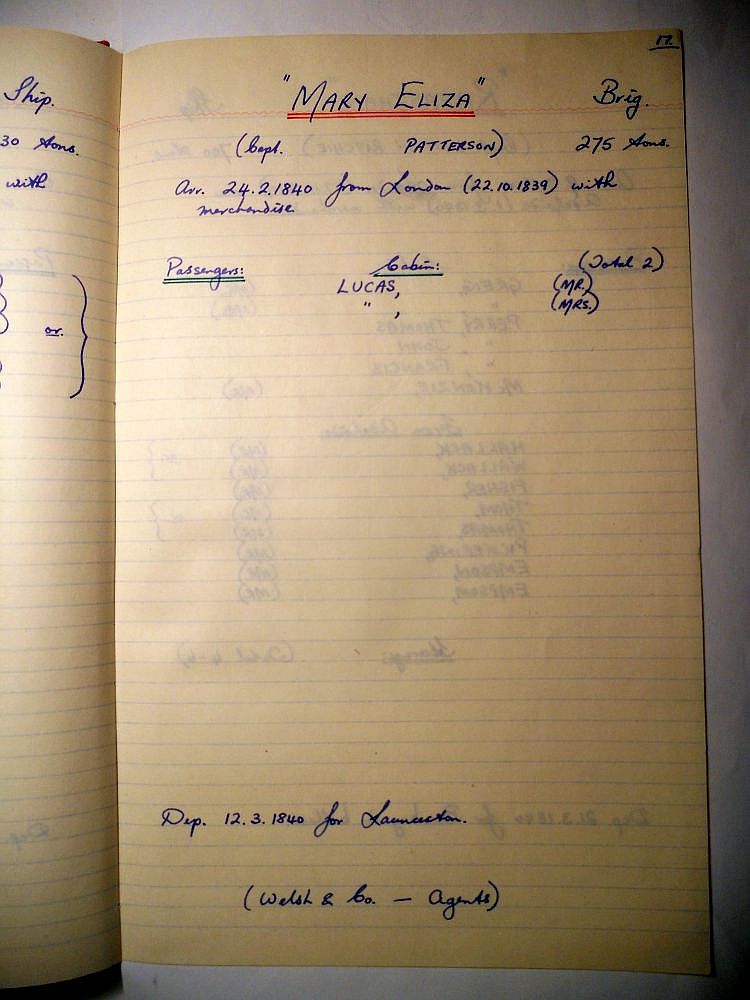 17.
Ship. "MARY ELIZA" Brig.
30 tons. (Capt. PATTERSON) 275 tons.
with Arr. 24.2.1840 from London (22.10.1839) with
merchandise.
Passengers: Cabin: (Total 2)
LUCAS, (MR.)
" , (MRS.)
or.
Dep. 12.3.1840 for Launceston.
(Welsh & Co. — Agents)